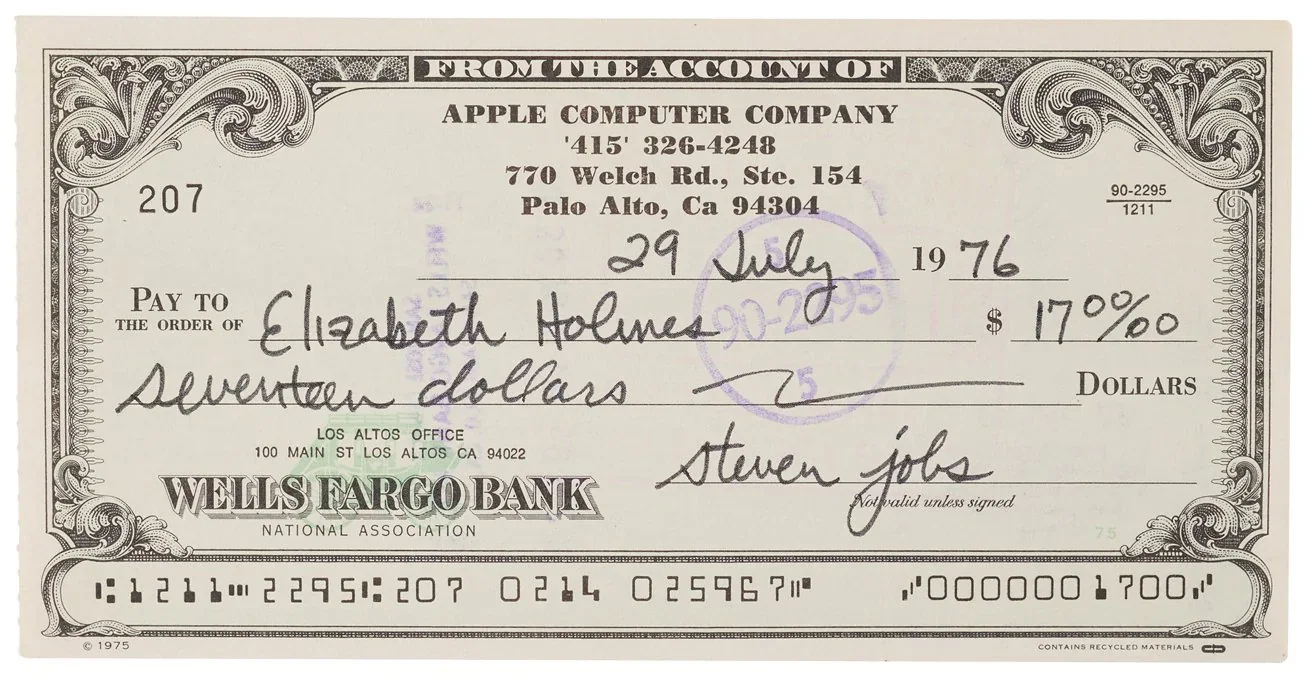 FROM THE ACCOUNT OF
APPLE COMPUTER COMPANY
'415' 326-4248
770 Welch Rd., Ste. 154
Palo Alto, Ca 94304
207
90-2295
1211
29 July 1976
PAY TO
THE ORDER OF Elizabeth Holmes $ 17 00/00
seventeen dollars DOLLARS
5
90-2295
5
LOS ALTOS OFFICE
100 MAIN ST LOS ALTOS CA 94022
WELLS FARGO BANK
NATIONAL ASSOCIATION
steven jobs
Not valid unless signed
75
⑆1211⑉2295⑆207 0214 025967⑈ ⑇0000001700⑇
© 1975
CONTAINS RECYCLED MATERIALS